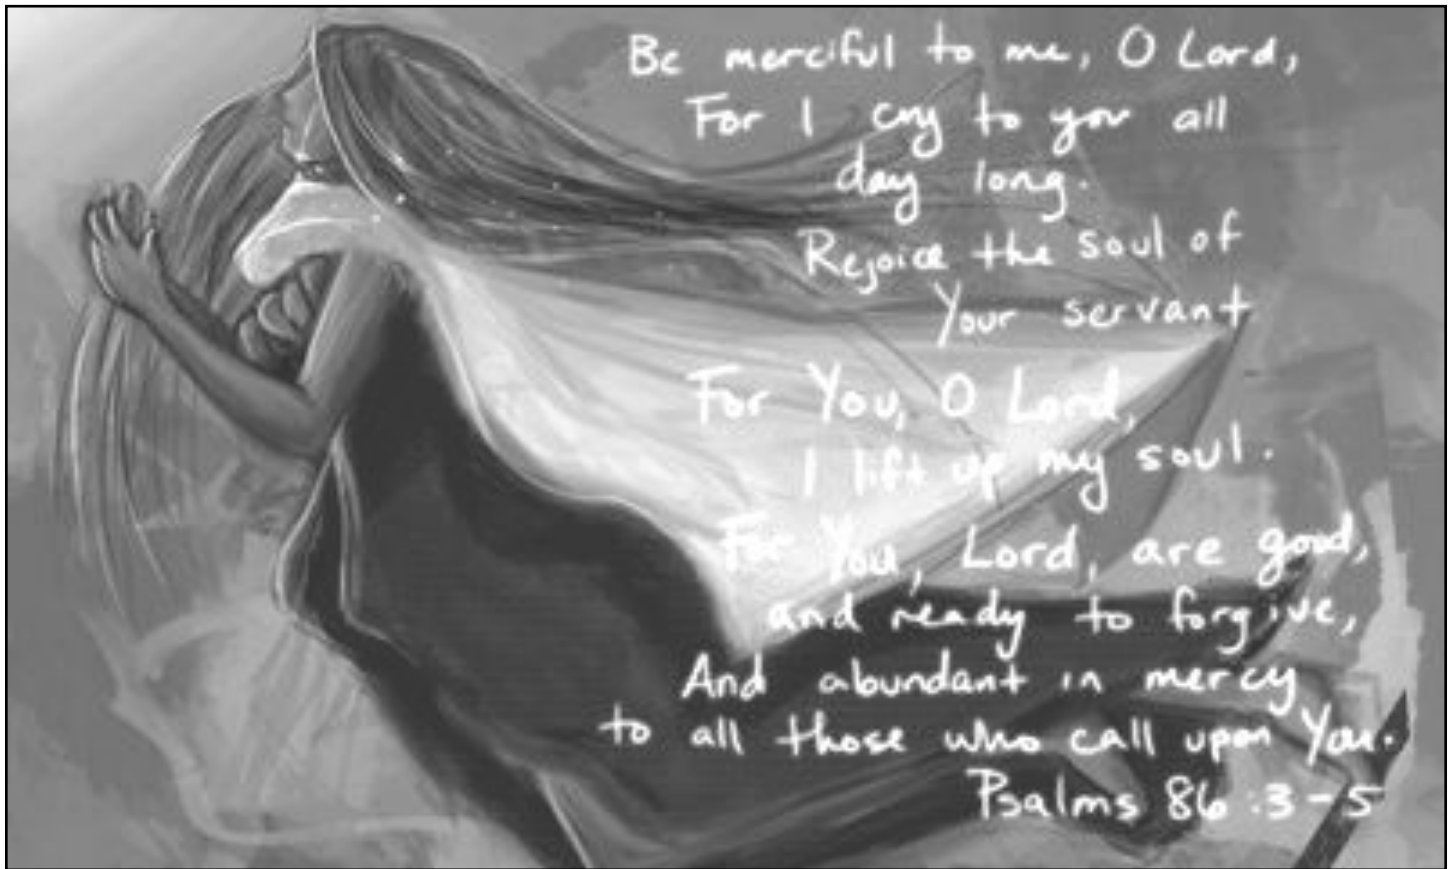 Be merciful to me, O Lord,
For I cry to you all
day long.
Rejoice the soul of
Your servant
For You, O Lord,
I lift up my soul.
For You, Lord, are good,
and ready to forgive,
And abundant in mercy
to all those who call upon You.
Psalms 86:3-5